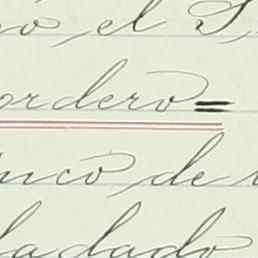 ó el S
ordero=
nco de
ladado